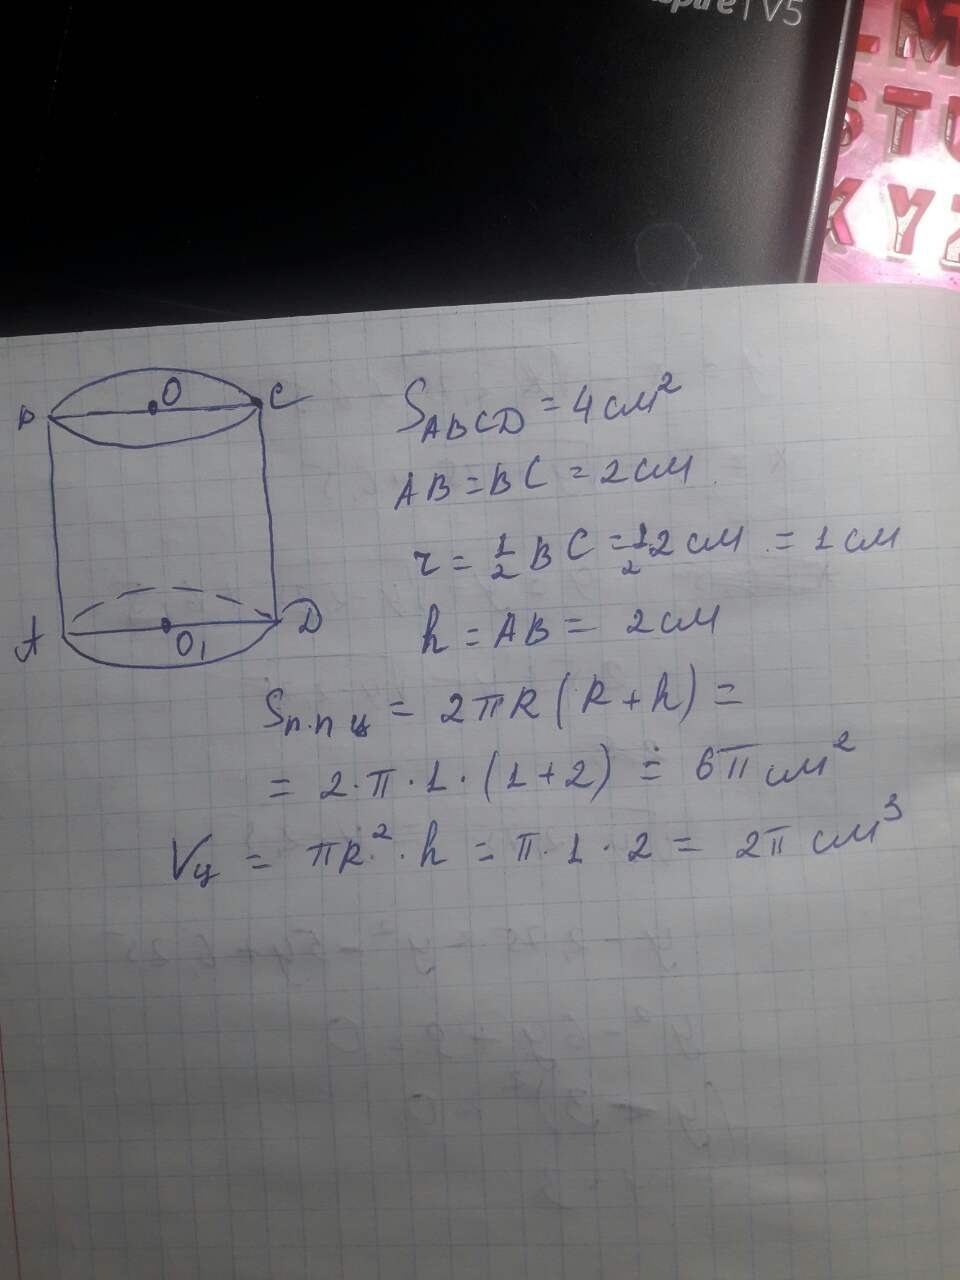 spire | V5
LM
STU
KYZ
B O C
S_ABCD = 4 см²
AB = BC = 2 см
r = 1/2 BC = 1/2 2 см = 1 см
A O₁ D
h = AB = 2 см
S п.п ц = 2πR (R + h) =
= 2 · π · 1 · (1 + 2) = 6π см²
Vц = πR² · h = π · 1 · 2 = 2π см³